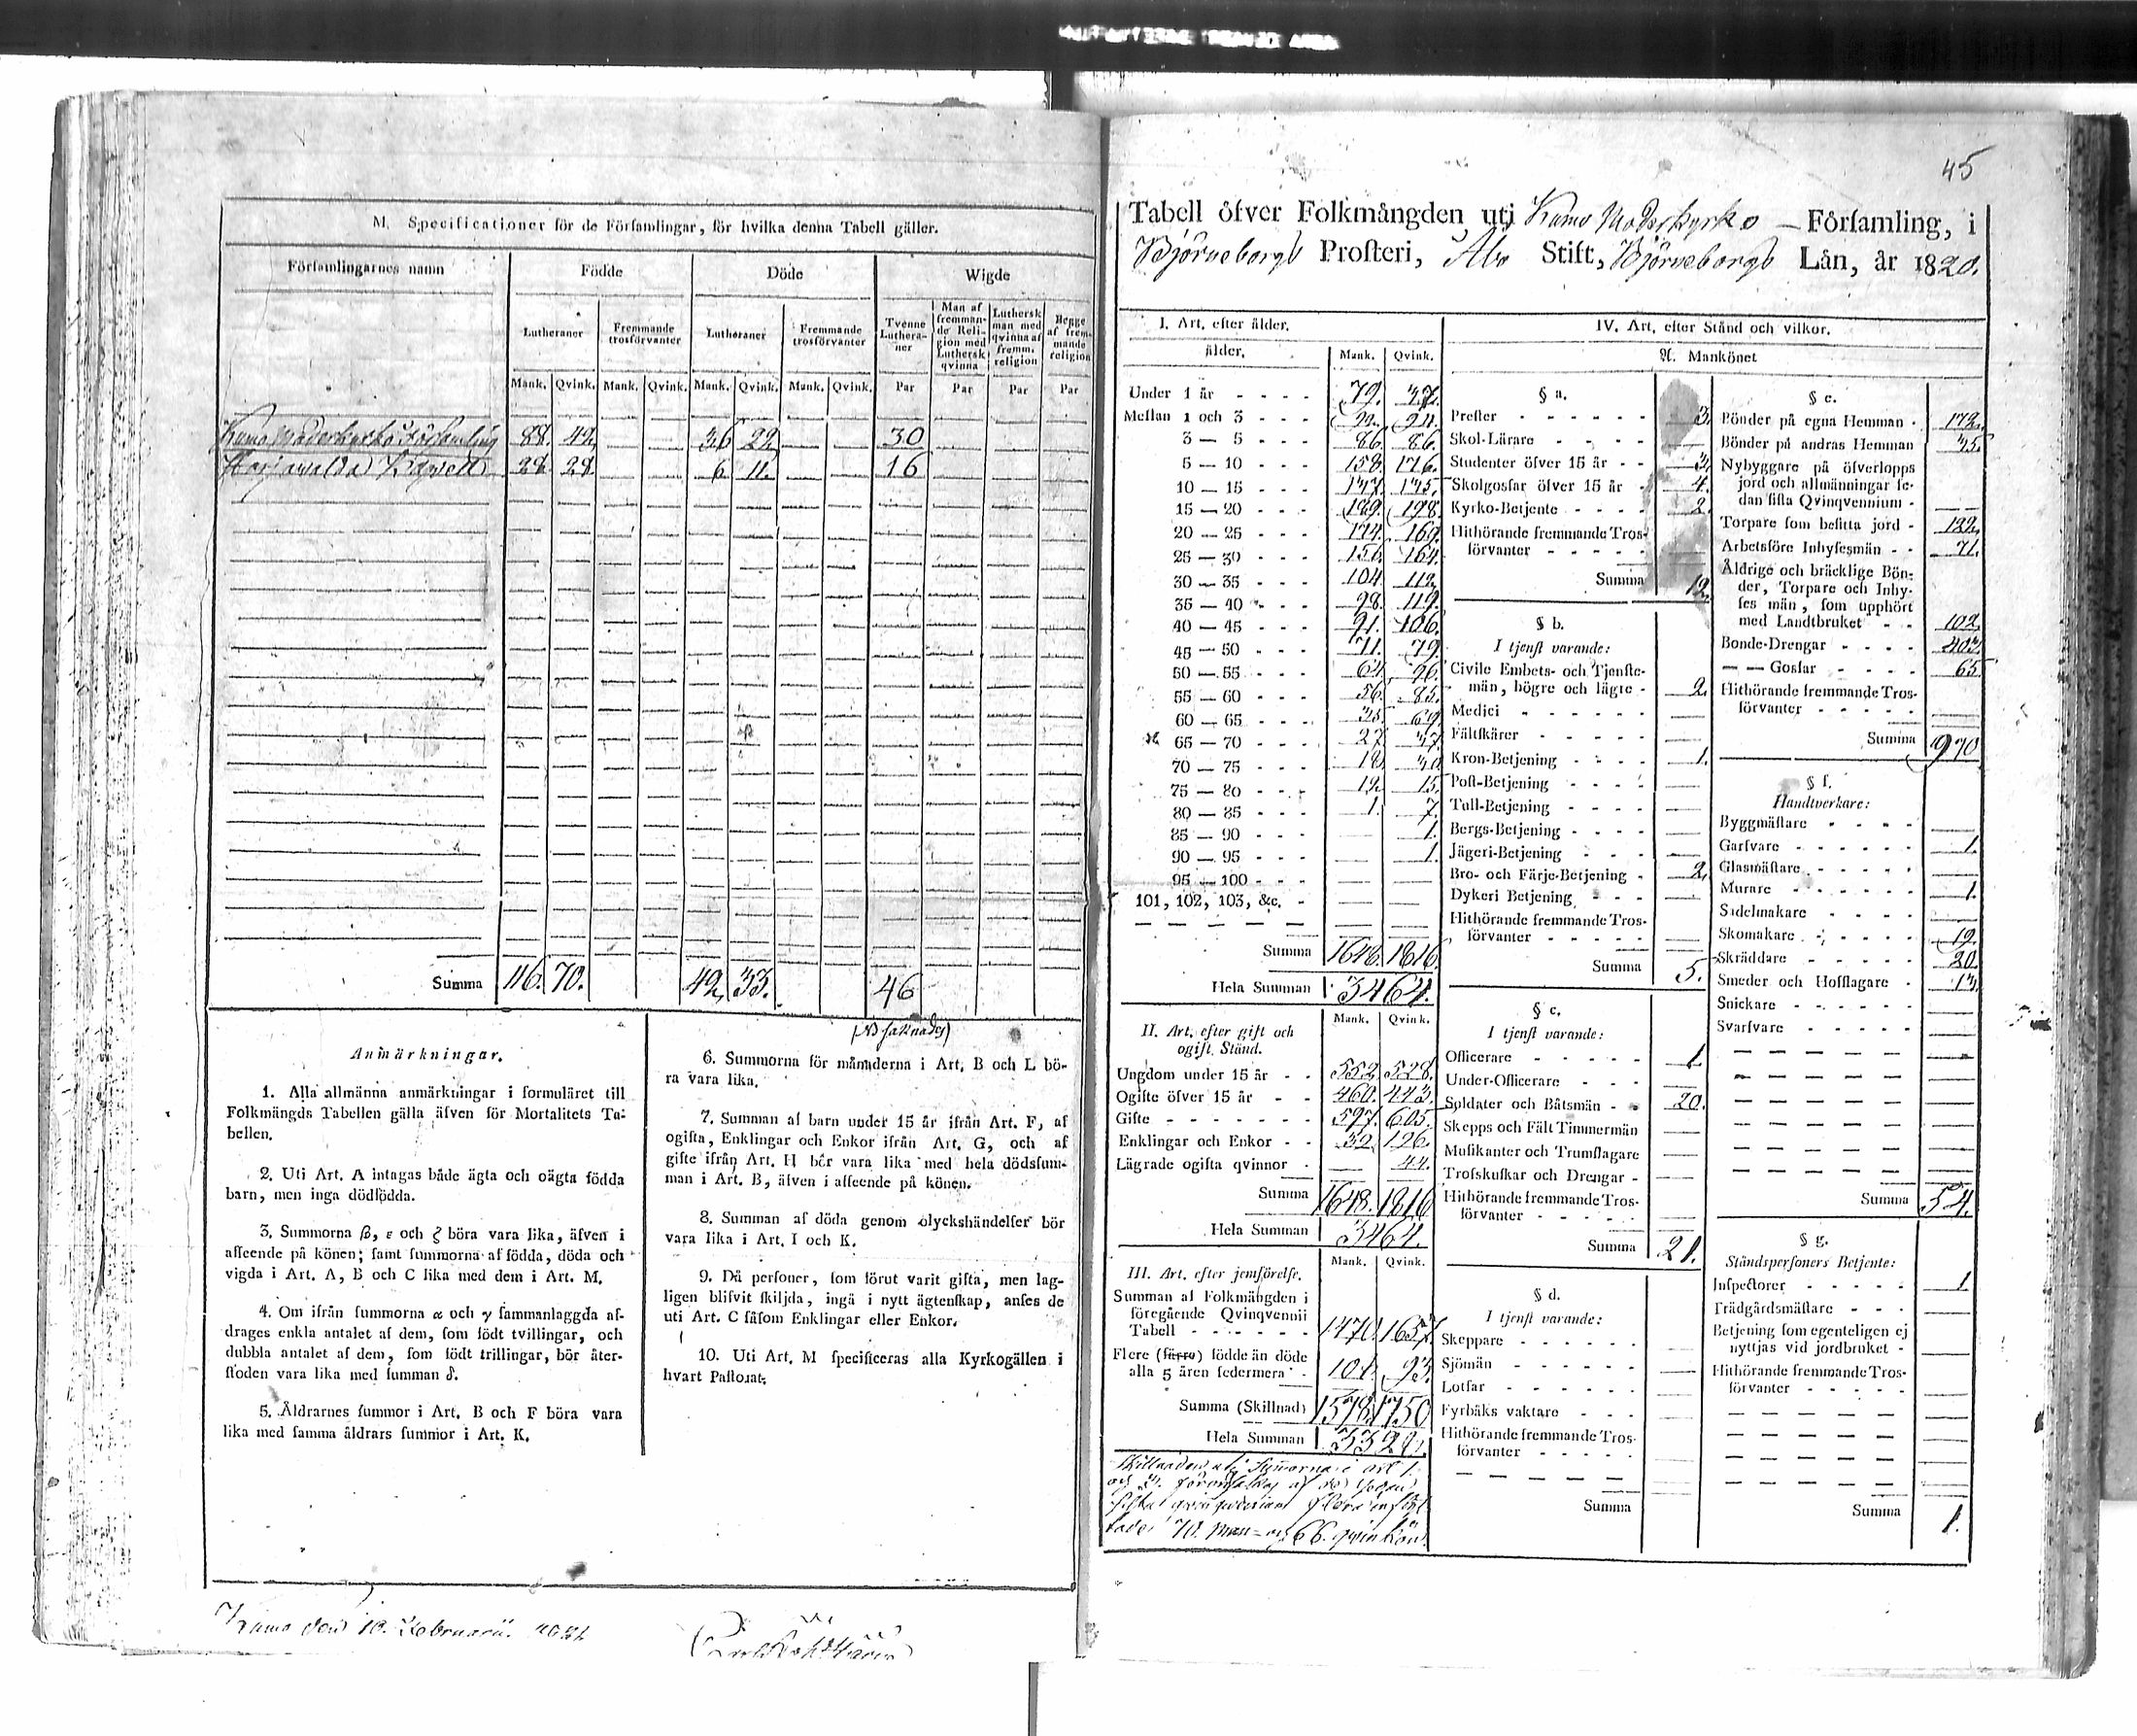 M. Specificationer för de Församlingar, för hvilka denna Tabell gäller.
Församlingarnes namn Födde Döde Wigde
Lutheraner Fremmande trosförvanter Lutheraner Fremmande trosförvanter Tvenne Lutheraner Man af fremmande Religion med Luthersk qvinna Luthersk man med qvinna af fremm. religion Begge af fremmande religion
Mank. Qvink. Mank. Qvink. Mank. Qvink. Mank. Qvink. Par Par Par Par
Kumo Moderkyrko Församling 88. 42 36 22 30
Harjawalda Kapell 28. 28. 6. 11. 16
Summa 116. 70. 42 33. 46
Anmärkningar.
1. Alla allmänna anmärkningar i formuläret till
Folkmängds Tabellen gälla äfven för Mortalitets Ta-
bellen.
2. Uti Art. A intagas både ägta och oägta födda
barn, men inga dödfödda.
3. Summorna β, ε och ζ böra vara lika, äfven i
afseende på könen; samt summorna af födda, döda och
vigda i Art. A, B och C lika med dem i Art. M.
4. Om ifrån summorna α och γ sammanlaggda af-
drages enkla antalet af dem, som födt tvillingar, och
dubbla antalet af dem, som födt trillingar, bör åter-
stoden vara lika med summan δ.
5. Åldrarnes summor i Art. B och F böra vara
lika med samma åldrars summor i Art. K.
6. Summorna för månaderna i Art. B och L bö-
ra vara lika.
7. Summan af barn under 15 år ifrån Art. F, af
ogifta, Enklingar och Enkor ifrån Art. G, och af
gifte ifrån Art. H bör vara lika med hela dödssum-
man i Art. B, äfven i afseende på könen.
8. Summan af döda genom olyckshändelser bör
vara lika i Art. I och K.
9. Då personer, som förut varit gifta, men lag-
ligen blifvit skiljda, ingå i nytt ägtenskap, anses de
uti Art. C såsom Enklingar eller Enkor.
10. Uti Art. M specificeras alla Kyrkogällen i
hvart Pastorat.
Kumo den 10. Februarii
45
Tabell öfver Folkmängden uti Kumo Moderkyrko Församling, i
Björneborgs Prosteri, Åbo Stift, Björneborgs Län, år 1820.
I. Art, efter ålder.
ålder. Mank. Qvink.
Under 1 år 79. 37.
Mellan 1 och 3
3 — 5 86. 86.
5 — 10 158. 176.
10 — 15 137. 135.
15 — 20 189. 198.
20 — 25 174. 169.
25 — 30 156. 164.
30 — 35 104. 112.
35 — 40 98. 119.
40 — 45 91. 106.
45 — 50 71. 79.
50 — 55 64. 96.
55 — 60 56. 85.
60 — 65 35. 69.
65 — 70 27. 37.
70 — 75 18. 30.
75 — 80 12. 15.
80 — 85 1. 7.
85 — 90 1.
90 — 95 1.
95 — 100
101, 102, 103, &c.
Summa 1648. 1816.
Hela Summan 3464.
II. Art. efter gift och
ogift Stånd.
Mank. Qvink.
Ungdom under 15 år 552. 528.
Ogifte öfver 15 år 460. 443.
Gifte 597. 605.
Enklingar och Enkor 32. 126.
Lägrade ogifta qvinnor
Summa 1648. 1816
Hela Summan 3464.
III. Art. efter jemförelse. Mank. Qvink.
Summan af Folkmängden i
föregående Qvinqvennii
Tabell 1470. 1657.
Flere (färre) födde än döde
alla 5 åren sedermera 93.
Summa (Skillnad) 1578. 1750
Hela Summan 3328.
IV. Art, efter Stånd och vilkor.
A. Mankönet
§ a.
Prester 3.
Skol-Lärare
Studenter öfver 15 år 3.
Skolgossar öfver 15 år 4.
Kyrko-Betjente 2.
Hithörande fremmande Tros-
förvanter
Summa 12.
§ b.
I tjenst varande:
Civile Embets- och Tjenste-
män, högre och lägre 2.
Medici
Fältskärer
Kron-Betjening 1.
Post-Betjening
Tull-Betjening
Bergs-Betjening
Jägeri-Betjening
Bro- och Färje-Betjening 2.
Dykeri Betjening
Hithörande fremmande Tros-
förvanter
Summa 5.
§ c.
I tjenst varande:
Officerare 1.
Under-Officerare
Soldater och Båtsmän 20.
Skepps och Fält Timmermän
Musikanter och Trumslagare
Trosskuskar och Drengar
Hithörande fremmande Tros-
förvanter
Summa 21.
§ d.
I tjenst varande:
Skeppare
Sjömän
Lotsar
Fyrbåks vaktare
Hithörande fremmande Tros-
förvanter
Summa
§ e.
Bönder på egna Hemman 172.
Bönder på andras Hemman 35.
Nybyggare på öfverlopps
jord och allmänningar se-
dan sista Qvinqvennium
Torpare som besitta jord 122.
Arbetsföre Inhysesmän 71.
Åldrige och bräcklige Bön-
der, Torpare och Inhy-
ses män, som upphört
med Landtbruket 102.
Bonde-Drengar 403.
— — Gossar 65
Hithörande fremmande Tros-
förvanter
Summa 970
§ f.
Handtverkare:
Byggmästare
Garfvare 1.
Glasmästare
Murare 1.
Sadelmakare
Skomakare 19.
Skräddare 20.
Smeder och Hofslagare 13.
Snickare
Svarfvare
Summa 54.
§ g.
Ståndspersoners Betjente:
Inspektorer 1.
Trädgårdsmästare
Betjening som egenteligen ej
nyttjas vid jordbruket
Hithörande fremmande Tros-
förvanter
Summa 1.